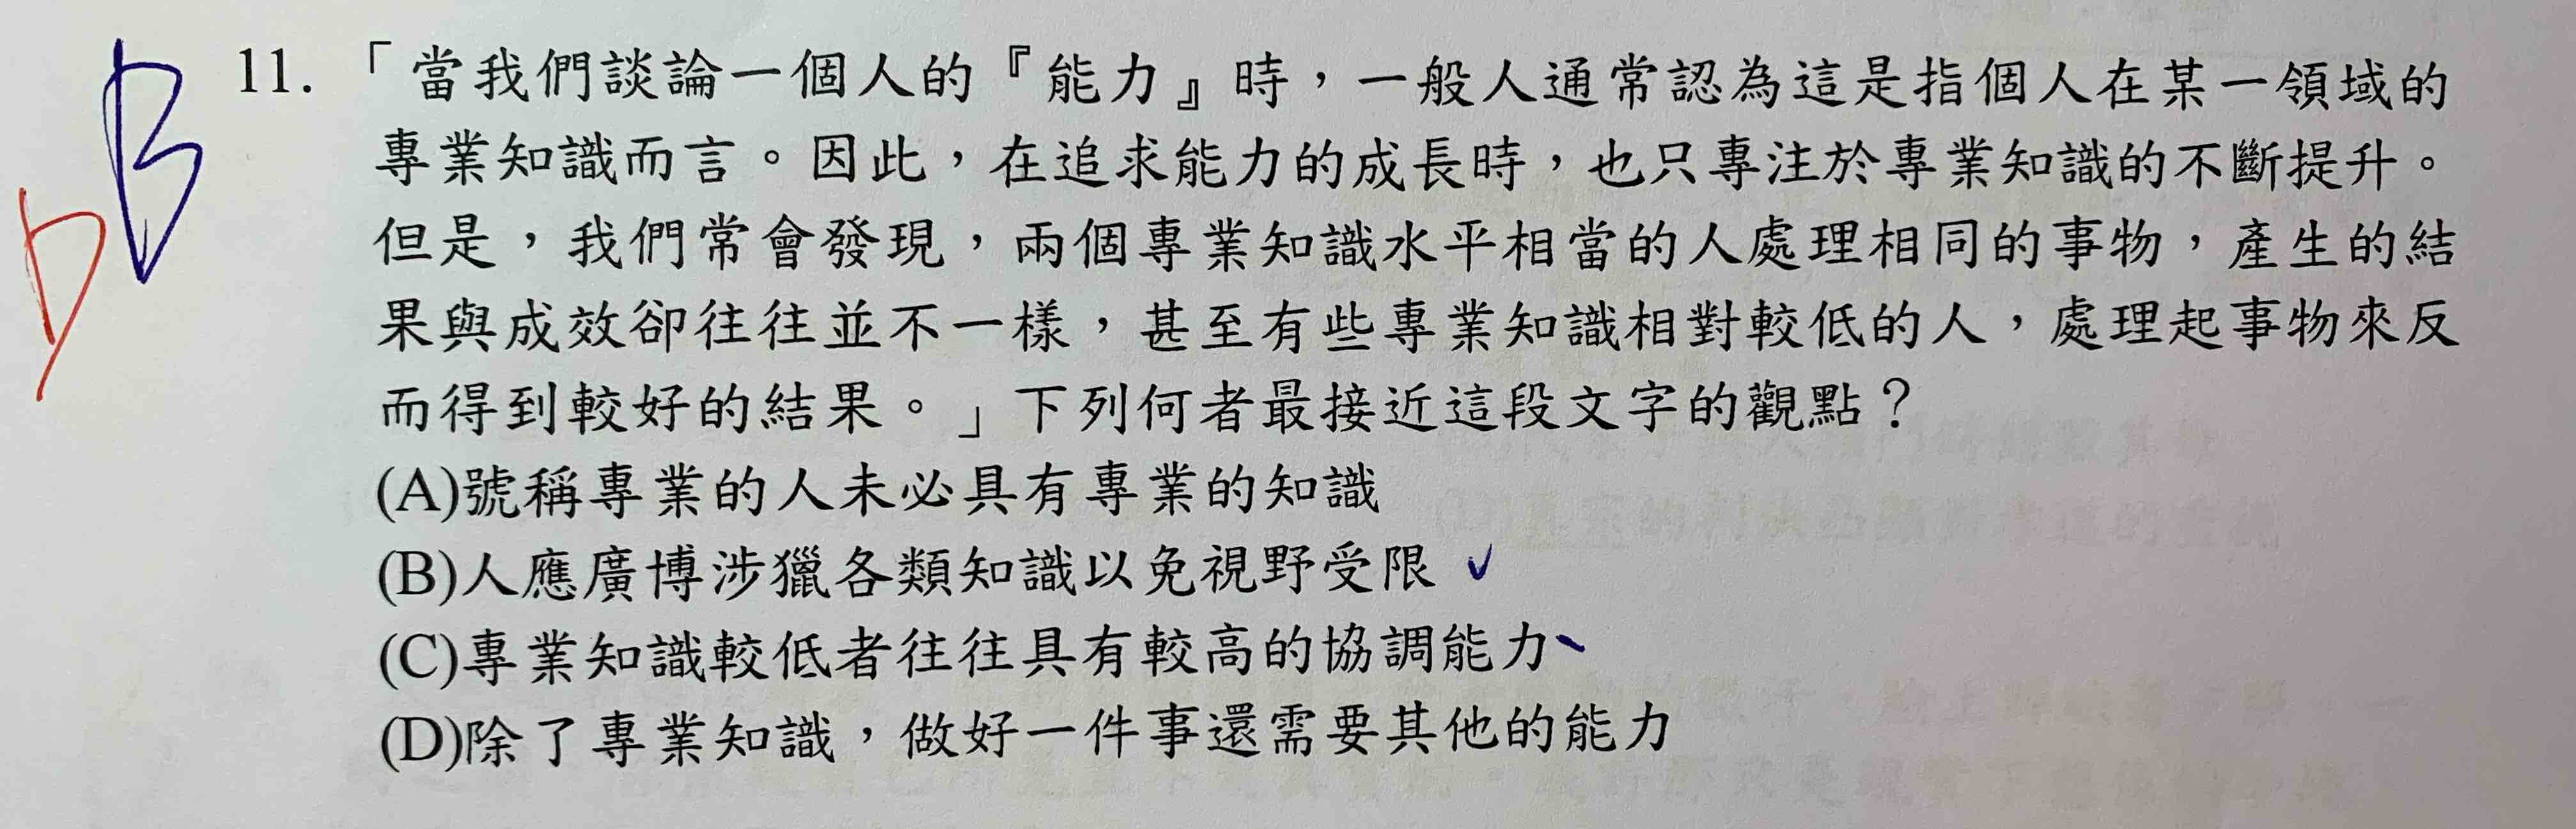 B
D
11. 「當我們談論一個人的『能力』時，一般人通常認為這是指個人在某一領域的
專業知識而言。因此，在追求能力的成長時，也只專注於專業知識的不斷提升。
但是，我們常會發現，兩個專業知識水平相當的人處理相同的事物，產生的結
果與成效卻往往並不一樣，甚至有些專業知識相對較低的人，處理起事物來反
而得到較好的結果。」下列何者最接近這段文字的觀點？
(A)號稱專業的人未必具有專業的知識
(B)人應廣博涉獵各類知識以免視野受限 ✓
(C)專業知識較低者往往具有較高的協調能力
(D)除了專業知識，做好一件事還需要其他的能力